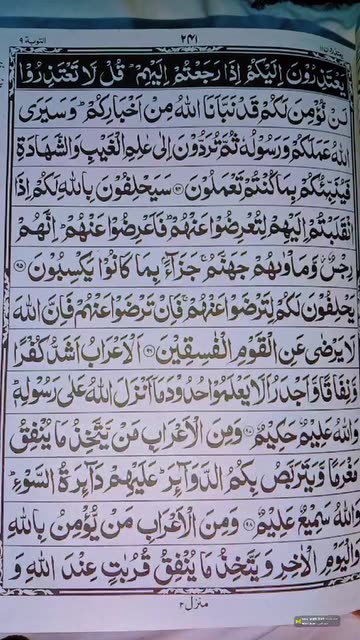 التوبة ٩
٢٤١
يعتذرون ١١
يَعْتَذِرُوْنَ اِلَيْكُمْ اِذَا رَجَعْتُمْ اِلَيْهِمْ ؕ قُلْ لَّا تَعْتَذِرُوْا
لَنْ نُّؤْمِنَ لَكُمْ قَدْ نَبَّاَنَا اللّٰهُ مِنْ اَخْبَارِكُمْ ؕ وَسَيَرَى
اللّٰهُ عَمَلَكُمْ وَرَسُوْلُهٗ ثُمَّ تُرَدُّوْنَ اِلٰى عٰلِمِ الْغَيْبِ وَالشَّهَادَةِ
فَيُنَبِّئُكُمْ بِمَا كُنْتُمْ تَعْمَلُوْنَ ۹۴ سَيَحْلِفُوْنَ بِاللّٰهِ لَكُمْ اِذَا
انْقَلَبْتُمْ اِلَيْهِمْ لِتُعْرِضُوْا عَنْهُمْ ؕ فَاَعْرِضُوْا عَنْهُمْ ؕ اِنَّهُمْ
رِجْسٌ وَّمَاْوٰىهُمْ جَهَنَّمُ ۚ جَزَآءًۢ بِمَا كَانُوْا يَكْسِبُوْنَ ۹۵
يَحْلِفُوْنَ لَكُمْ لِتَرْضَوْا عَنْهُمْ ۚ فَاِنْ تَرْضَوْا عَنْهُمْ فَاِنَّ اللّٰهَ
لَا يَرْضٰى عَنِ الْقَوْمِ الْفٰسِقِيْنَ ۹۶ اَلْاَعْرَابُ اَشَدُّ كُفْرًا
وَّنِفَاقًا وَّاَجْدَرُ اَلَّا يَعْلَمُوْا حُدُوْدَ مَاۤ اَنْزَلَ اللّٰهُ عَلٰى رَسُوْلِهٖ ؕ
وَاللّٰهُ عَلِيْمٌ حَكِيْمٌ ۹۷ وَمِنَ الْاَعْرَابِ مَنْ يَّتَّخِذُ مَا يُنْفِقُ
مَغْرَمًا وَّيَتَرَبَّصُ بِكُمُ الدَّوَآئِرَ ؕ عَلَيْهِمْ دَآئِرَةُ السَّوْءِ ؕ
وَاللّٰهُ سَمِيْعٌ عَلِيْمٌ ۹۸ وَمِنَ الْاَعْرَابِ مَنْ يُّؤْمِنُ بِاللّٰهِ
وَالْيَوْمِ الْاٰخِرِ وَيَتَّخِذُ مَا يُنْفِقُ قُرُبٰتٍ عِنْدَ اللّٰهِ وَ
منزل ٢